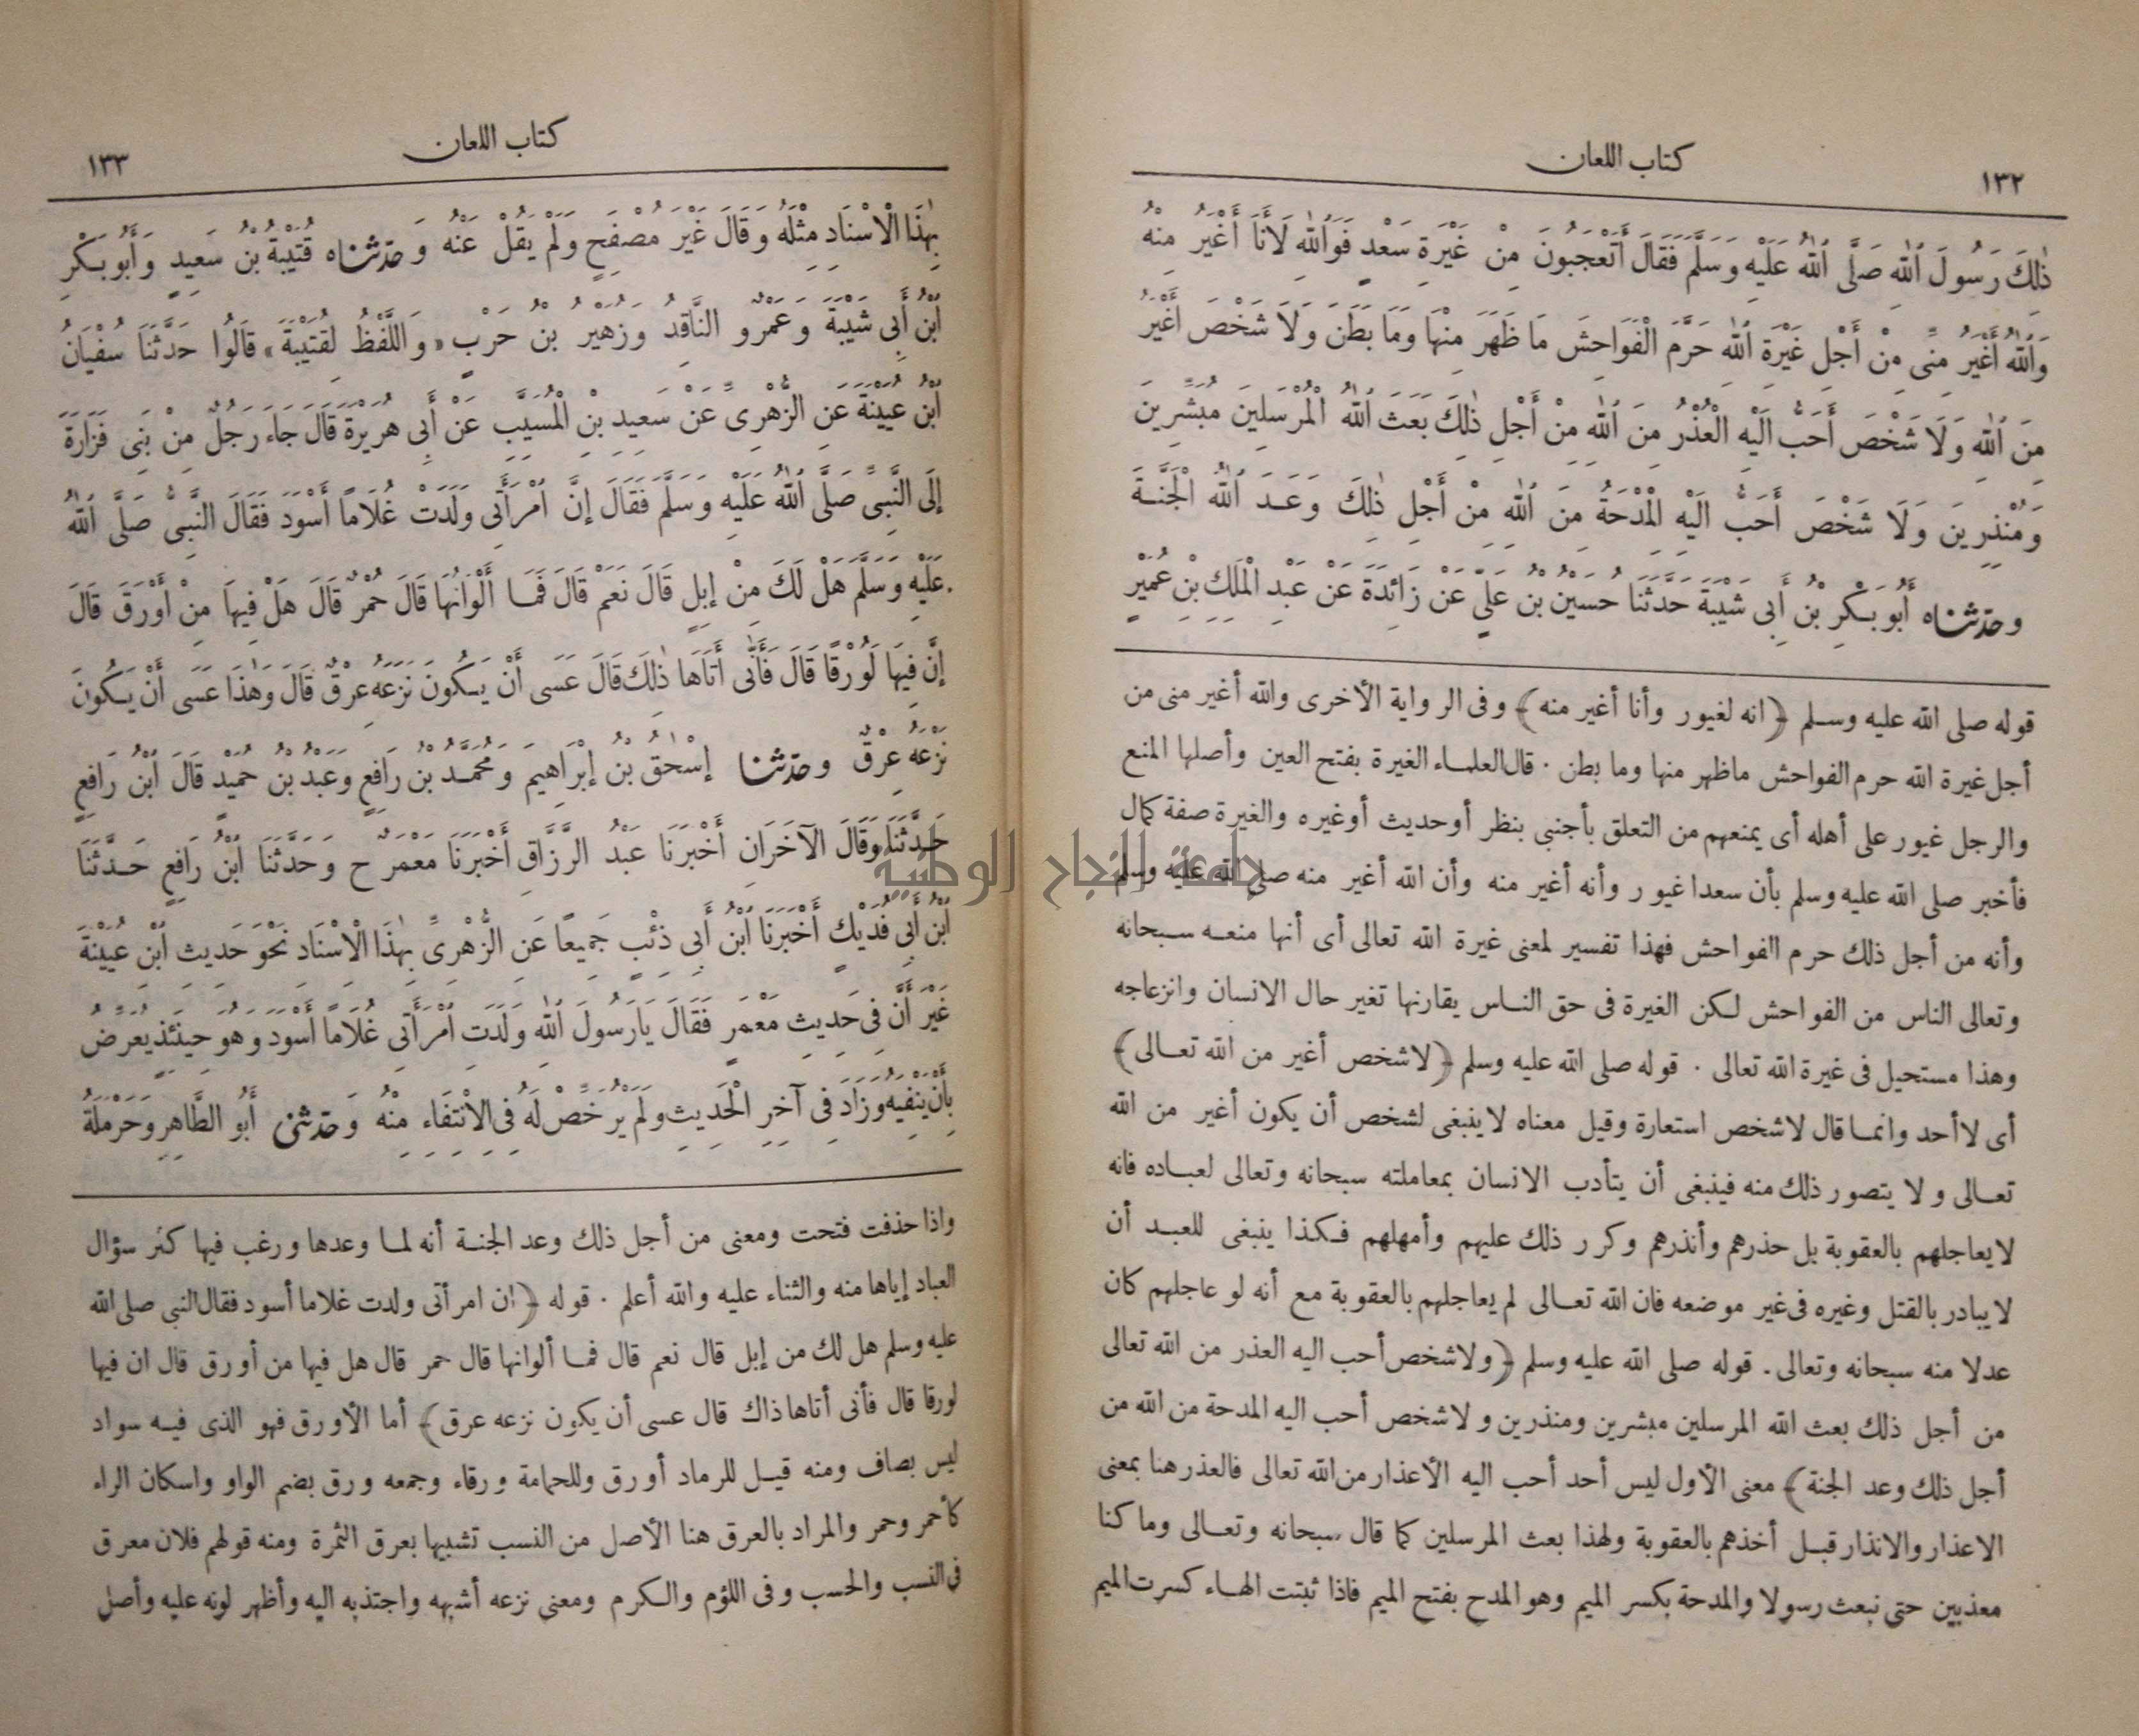 ١٣٢
كتاب اللعان
ذٰلِكَ رَسُولَ ٱللّٰهِ صَلَّى ٱللّٰهُ عَلَيْهِ وَسَلَّمَ فَقَالَ أَتَعْجَبُونَ مِنْ غَيْرَةِ سَعْدٍ فَوَٱللّٰهِ لَأَنَا أَغْيَرُ مِنْهُ
وَٱللّٰهُ أَغْيَرُ مِنِّى مِنْ أَجْلِ غَيْرَةِ ٱللّٰهِ حَرَّمَ الْفَوَاحِشَ مَا ظَهَرَ مِنْهَا وَمَا بَطَنَ وَلَا شَخْصَ أَغْيَرُ
مِنَ ٱللّٰهِ وَلَا شَخْصَ أَحَبُّ الَيْهِ الْعُذْرُ مِنَ ٱللّٰهِ مِنْ أَجْلِ ذٰلِكَ بَعَثَ ٱللّٰهُ الْمُرْسَلِينَ مُبَشِّرِينَ
وَمُنْذِرِينَ وَلَا شَخْصَ أَحَبُّ الَيْهِ الْمِدْحَةُ مِنَ ٱللّٰهِ مِنْ أَجْلِ ذٰلِكَ وَعَدَ ٱللّٰهُ الْجَنَّةَ
وحدثناه أَبُو بَكْرِ بْنُ أَبِى شَيْبَةَ حَدَّثَنَا حُسَيْنُ بْنُ عَلِىٍّ عَنْ زَائِدَةَ عَنْ عَبْدِ الْمَلِكِ بْنِ عُمَيْرٍ
قوله صلى الله عليه وسلم ﴿انه لغيور وأنا أغير منه﴾ وفى الرواية الأخرى والله أغير منى من
أجل غيرة الله حرم الفواحش ماظهر منها وما بطن . قال العلماء الغيرة بفتح الغين وأصلها المنع
والرجل غيور على أهله أى يمنعهم من التعلق بأجنبى بنظر أوحديث أوغيره والغيرة صفة كمال
فأخبر صلى الله عليه وسلم بأن سعدا غيور وأنه أغير منه وأن الله أغير منه صلى الله عليه وسلم
وأنه من أجل ذلك حرم الفواحش فهذا تفسير لمعنى غيرة الله تعالى أى أنها منعه سبحانه
وتعالى الناس من الفواحش لكن الغيرة فى حق الناس يقارنها تغير حال الانسان وانزعاجه
وهذا مستحيل فى غيرة الله تعالى . قوله صلى الله عليه وسلم ﴿لاشخص أغير من الله تعالى﴾
أى لاأحد وانما قال لاشخص استعارة وقيل معناه لاينبغى لشخص أن يكون أغير من الله
تعالى ولا يتصور ذلك منه فينبغى أن يتأدب الانسان بمعاملته سبحانه وتعالى لعباده فانه
لايعاجلهم بالعقوبة بل حذرهم وأنذرهم وكرر ذلك عليهم وأمهلهم فكذا ينبغى للعبد أن
لايبادر بالقتل وغيره فى غير موضعه فان الله تعالى لم يعاجلهم بالعقوبة مع أنه لو عاجلهم كان
عدلا منه سبحانه وتعالى . قوله صلى الله عليه وسلم ﴿ولاشخص أحب اليه العذر من الله تعالى
من أجل ذلك بعث الله المرسلين مبشرين ومنذرين ولاشخص أحب اليه المدحة من الله من
أجل ذلك وعد الجنة﴾ معنى الأول ليس أحد أحب اليه الأعذار من الله تعالى فالعذر هنا بمعنى
الاعذار والانذار قبل أخذهم بالعقوبة ولهذا بعث المرسلين كما قال سبحانه وتعالى وما كنا
معذبين حتى نبعث رسولا والمدحة بكسر الميم وهو المدح بفتح الميم فاذا ثبتت الهاء كسرت الميم
كتاب اللعان
١٣٣
بِهٰذَا الْاسْنَادِ مِثْلَهُ وَقَالَ غَيْرَ مُصْفِحٍ وَلَمْ يَقُلْ عَنْهُ وَحدثناه قُتَيْبَةُ بْنُ سَعِيدٍ وَأَبُو بَكْرِ
ٱبْنُ أَبِى شَيْبَةَ وَعَمْرٌو النَّاقِدُ وَزُهَيْرُ بْنُ حَرْبٍ «وَاللَّفْظُ لِقُتَيْبَةَ» قَالُوا حَدَّثَنَا سُفْيَانُ
ٱبْنُ عُيَيْنَةَ عَنِ الزُّهْرِىِّ عَنْ سَعِيدِ بْنِ الْمُسَيَّبِ عَنْ أَبِى هُرَيْرَةَ قَالَ جَاءَ رَجُلٌ مِنْ بَنِى فَزَارَةَ
إلَى النَّبِىِّ صَلَّى ٱللّٰهُ عَلَيْهِ وَسَلَّمَ فَقَالَ إنَّ ٱمْرَأَتِى وَلَدَتْ غُلَامًا أَسْوَدَ فَقَالَ النَّبِىُّ صَلَّى ٱللّٰهُ
عَلَيْهِ وَسَلَّمَ هَلْ لَكَ مِنْ إبِلٍ قَالَ نَعَمْ قَالَ فَمَا أَلْوَانُهَا قَالَ حُمْرٌ قَالَ هَلْ فِيهَا مِنْ أَوْرَقَ قَالَ
إنَّ فِيهَا لَوُرْقًا قَالَ فَأَنَّى أَتَاهَا ذٰلِكَ قَالَ عَسَى أَنْ يَكُونَ نَزَعَهُ عِرْقٌ قَالَ وَهٰذَا عَسَى أَنْ يَكُونَ
نَزَعَهُ عِرْقٌ وحدثنا إسْحٰقُ بْنُ إبْرَاهِيمَ وَمُحَمَّدُ بْنُ رَافِعٍ وَعَبْدُ بْنُ حُمَيْدٍ قَالَ ٱبْنُ رَافِعٍ
حَدَّثَنَا وَقَالَ الآخَرَانِ أَخْبَرَنَا عَبْدُ الرَّزَّاقِ أَخْبَرَنَا مَعْمَرٌ ح وَحَدَّثَنَا ٱبْنُ رَافِعٍ حَدَّثَنَا
ٱبْنُ أَبِى فُدَيْكٍ أَخْبَرَنَا ٱبْنُ أَبِى ذِئْبٍ جَمِيعًا عَنِ الزُّهْرِىِّ بِهٰذَا الْاسْنَادِ نَحْوَ حَدِيثِ ٱبْنِ عُيَيْنَةَ
غَيْرَ أَنَّ فِى حَدِيثِ مَعْمَرٍ فَقَالَ يَارَسُولَ ٱللّٰهِ وَلَدَتِ ٱمْرَأَتِى غُلَامًا أَسْوَدَ وَهُوَ حِينَئِذٍ يُعَرِّضُ
بِأَنْ يَنْفِيَهُ وَزَادَ فِى آخِرِ الْحَدِيثِ وَلَمْ يُرَخِّصْ لَهُ فِى الِانْتِفَاءِ مِنْهُ وَحدثنى أَبُو الطَّاهِرِ وَحَرْمَلَةُ
واذا حذفت فتحت ومعنى من أجل ذلك وعد الجنة أنه لما وعدها ورغب فيها كثر سؤال
العباد إياها منه والثناء عليه والله أعلم . قوله ﴿ان امرأتى ولدت غلاما أسود فقال النبى صلى الله
عليه وسلم هل لك من إبل قال نعم قال فما ألوانها قال حمر قال هل فيها من أورق قال ان فيها
لورقا قال فأنى أتاها ذاك قال عسى أن يكون نزعه عرق﴾ أما الأورق فهو الذى فيه سواد
ليس بصاف ومنه قيل للرماد أورق وللحمامة ورقاء وجمعه ورق بضم الواو واسكان الراء
كأحمر وحمر والمراد بالعرق هنا الأصل من النسب تشبيها بعرق الثمرة ومنه قولهم فلان معرق
فى النسب والحسب وفى اللؤم والكرم ومعنى نزعه أشبهه واجتذبه اليه وأظهر لونه عليه وأصل
جامعة النجاح الوطنية